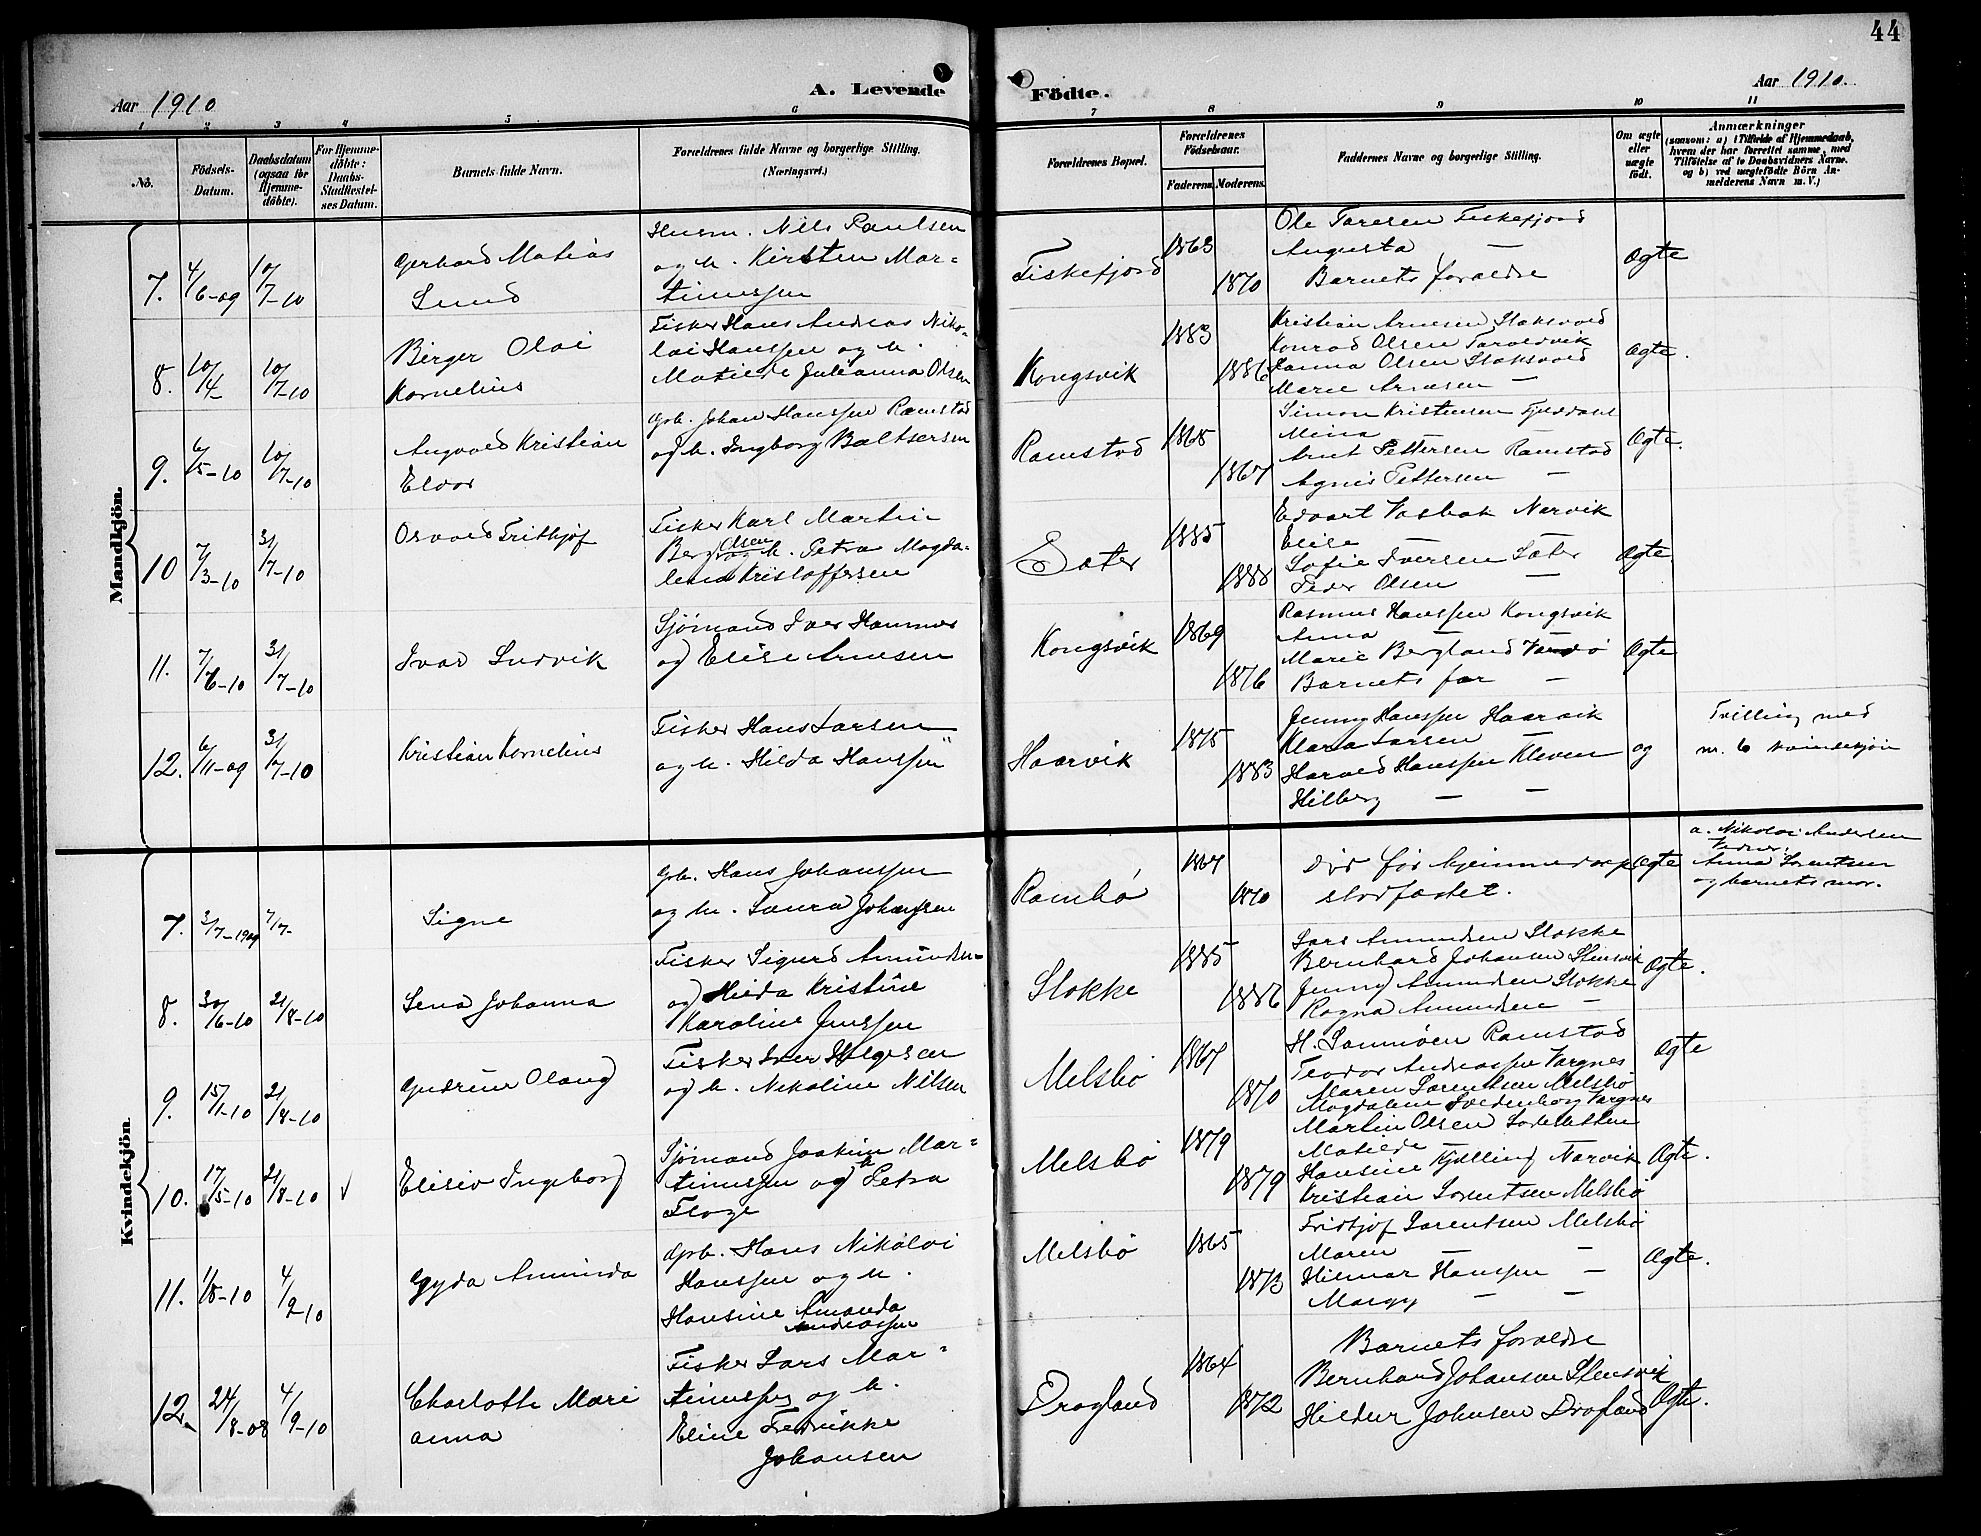 44
Aar 1910
A. Levende
Födte.
Aar 1910.
1 2 3 4 5 6 7 8 9 10 11
No.
Födsels-Datum.
Daabsdatum (ogsaa for Hjemme-döbte).
For Hjemme-döbte: Daabs-Stadfæstel-ses Datum.
Barnets fulde Navn.
Forældrenes fulde Navne og borgerlige Stilling.
(Næringsvei.)
Forældrenes Bopæl.
Forældrenes Födselsaar.
Faderens. Moderens.
Faddernes Navne og borgerlige Stilling.
Om ægte eller uægte födt.
Anmærkninger
(saasom: a) i Tilfælde af Hjemmedaab,
hvem der har forrettet samme, med
Tilföielse af to Daabsvidners Navne.
og b) ved uægtefödte Börn An-
melderens Navn m. V.)
Mandkjön.
7. 4/6-09 10/7-10
Gerhard Matias
Lund
Husm. Nils Paulsen
og h. Kirsten Mar-
tinussen
Fiskefjord
1863
1870
Ole Taresen Fiskefjord
Augusta —
Barnets forældre
Ægte
8. 10/4 10/7-10
Birger Olai
Kornelius
Fisker Hans Andreas Niko-
lai Hanssen og h.
Matilde Julianna Olsen
Kongsvik
1883
1886
Kristian Arnesen Stoksvold
Konrad Olsen
Olsen Stoksvold
Marie Arnesen —
Ægte.
9. 6/5-10 10/7-10
Angvald Kristian
Eldor
Grb. Johan Hanssen Ramstad
og h. Ingborg Baltsersen
Ramstad
1865
1867
Simon Kristensen
Mina
Arnt Pettersen Ramstad
Agnes Pettersen —
Ægte.
10 7/3-10 31/7-10
Osvald Frithjof
Fisker Karl Martin
Berg Olsen og h. Petra Magda-
lena Kristoffersen
Sæter
1885
1888
Edvart Vasbak Narvik
Elise —
Sofie Iversen Sæter
Peder Olsen —
Ægte.
11. 7/6-10 31/7-10
Ivar Ludvik
Sjømand Iver Hammer
og Elise Arnesen
Kongsvik
1869
1876
Rasmus Hanssen Kongsvik
Anna —
Marie Bergland Vardø
Barnets far —
Ægte
12. 6/11-09 31/7-10
Kristian Kornelius
Fisker Hans Larsen
og h. Hilda Hanssen
Haarvik
1875
1883
Jenny Hanssen Haarvik
Klara Larsen —
Harald Hanssen Kleven
Hilberg — —
og
Tvilling med
nr. 6 kvindekjön
Kvindekjön.
7. 3/7-1909 7/7-
Signe
Grb. Hans Johanssen
og h. Laura Johanssen
Rambø
1867
1870
Død før hjemmedaap
stadfæstet.
Ægte
a. Nikolai Andersen
Anna Lorentsen
og barnets mor.
8. 30/6-10 21/8-10
Lena Johanna
Fisker Sigurd Amundsen
og Hilda Kristine
Karoline Jenssen
Stokke
1885
1886
Lars Amundsen Stokke
Bernhard Johansen Stensvik
Jenny Amundsen Stokke
Ragna Amundsen —
Ægte.
9. 15/1-10 21/8-10
Gudrun Olaug
Fisker Iver Helgesen
og h. Nikoline Nilsen
Melsbø
1867
1870
H. Ramstad
Teodor Andreassen Vargnes
Maren Lorentsen Melsbø
Magdalene Svedenborg Vargnes
Ægte
10. 17/5-10 21/8-10 √
Elisiv Ingeborg
Sjømand Joakim Mar-
tinussen og h Petra
Floge
Melsbø
1879
1879
Martin Olsen
Matilde
Hansine Kjelling Narvik
Kristian Lorentsen Melsbø
Ægte.
11. 1/5-10 4/9-10
Gyda Aminda
Grb. Hans Nikolai
Hanssen og h.
Hansine Amanda
Andreassen
Melsbø
1865
1873
Fridtjof Lorentsen Melsbø
Maren — —
Hilmar Hanssen —
Margy — —
Ægte.
12. 24/8-08 4/9-10
Charlotte Marie
anna
Fisker Lars Mar-
tinussen og h.
Eline Fredrikke
Johansen
Dragland
1864
1872
Barnets forældre
Bernhard Johansen Stensvik
Hildur Johnsen Dragland
Ægte.